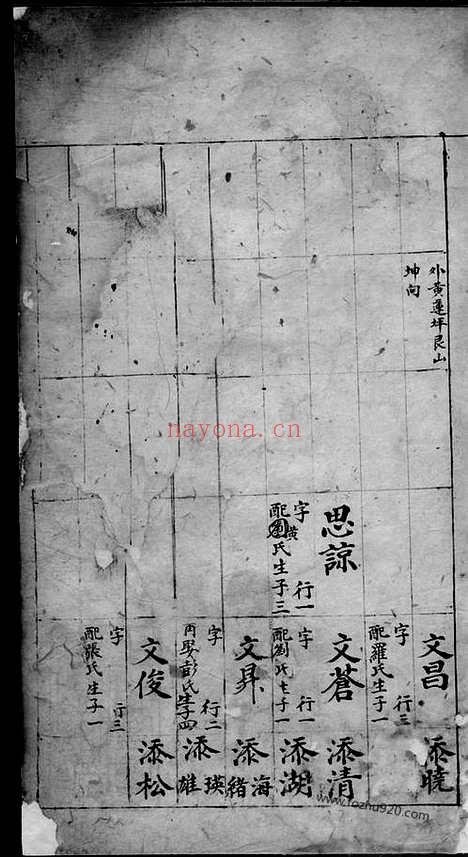 外黄蓮坪艮山
坤向
文昌
字 行三
配羅氏生子一
添曉
思諒
字 行一
配黄氏生子三
文蒼
字 行一
配劉氏生子一
添清
添湖
文昇
字 行二
丙娶彭氏生子四
添海
緒
添瑛
雄
文俊
字 行三
配張氏生子一
添松
nayona.cn
www.fozhu920.com